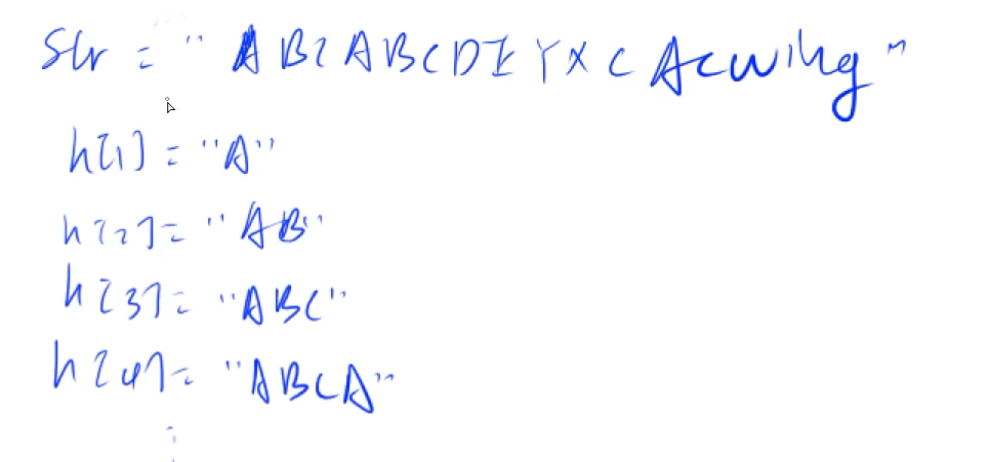 Str = "ABCABCDEYXCAcwing"
h[1] = "A"
h[2] = "AB"
h[3] = "ABC"
h[4] = "ABCA"
⋮